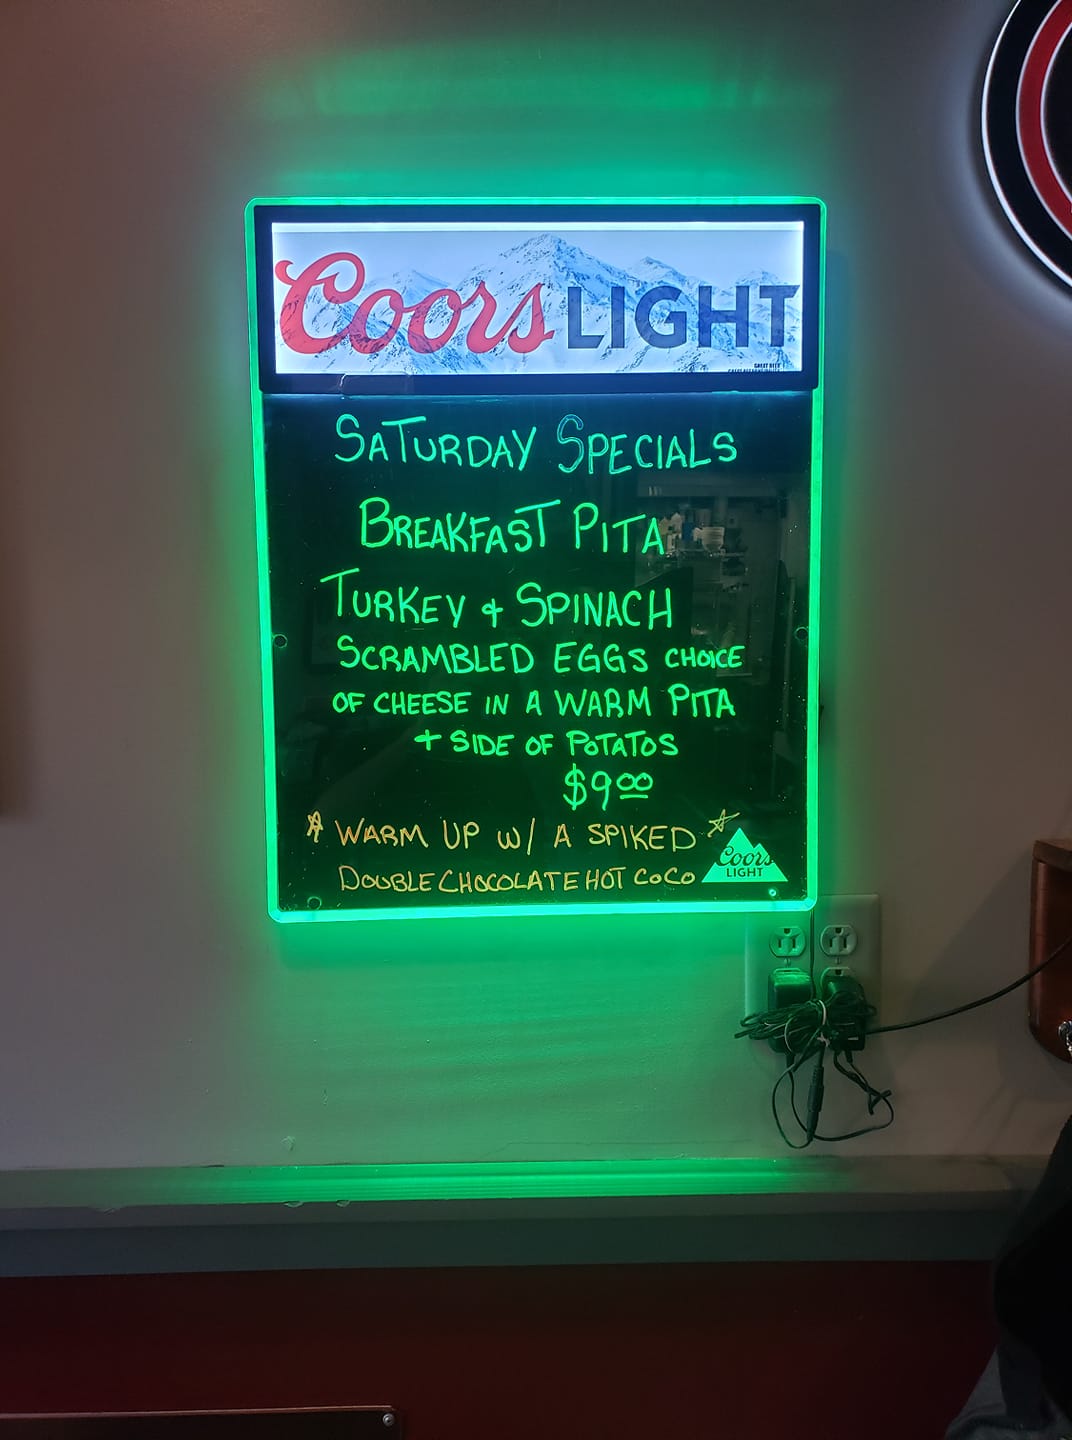 Coors LIGHT
GREAT BEER
SATURDAY SPECIALS
BREAKFAST PITA
TURKEY + SPINACH
SCRAMBLED EGGS CHOICE
OF CHEESE IN A WARM PITA
+ SIDE OF POTATOS
$9.00
WARM UP W/ A SPIKED
DOUBLE CHOCOLATE HOT COCO
Coors
LIGHT